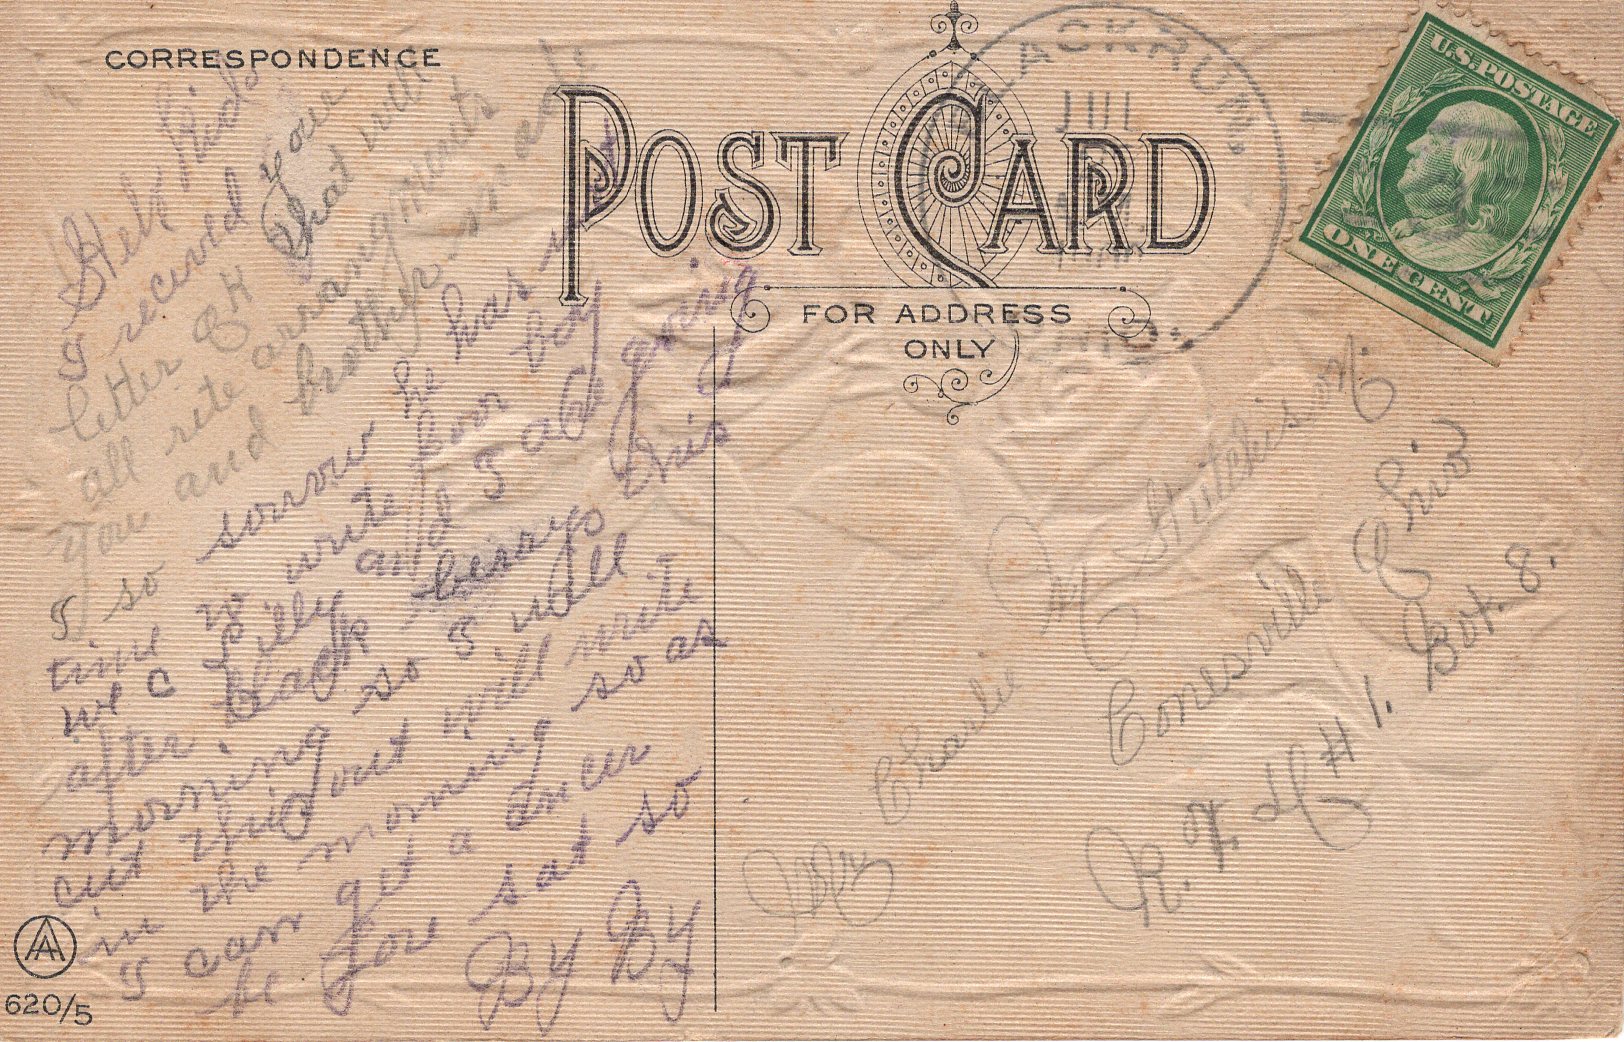 CORRESPONDENCE
POST CARD
FOR ADDRESS
ONLY
LACKRUN
JUL
U.S. POSTAGE
ONE CENT
Helo Kido
I received your
letter OK that will
all rite arrangments
you and brother made
I so sorrow he has
time to write poor boy
we C Billy and I are going
after black berrys this
morning so I will
cut this out will write
in the morning so as
I can get a ancer
be fore sat so
By By
Charlie M Hutchison.
Conesville Ohio
R. F. D # 1. Box. 8.
AA
620/5